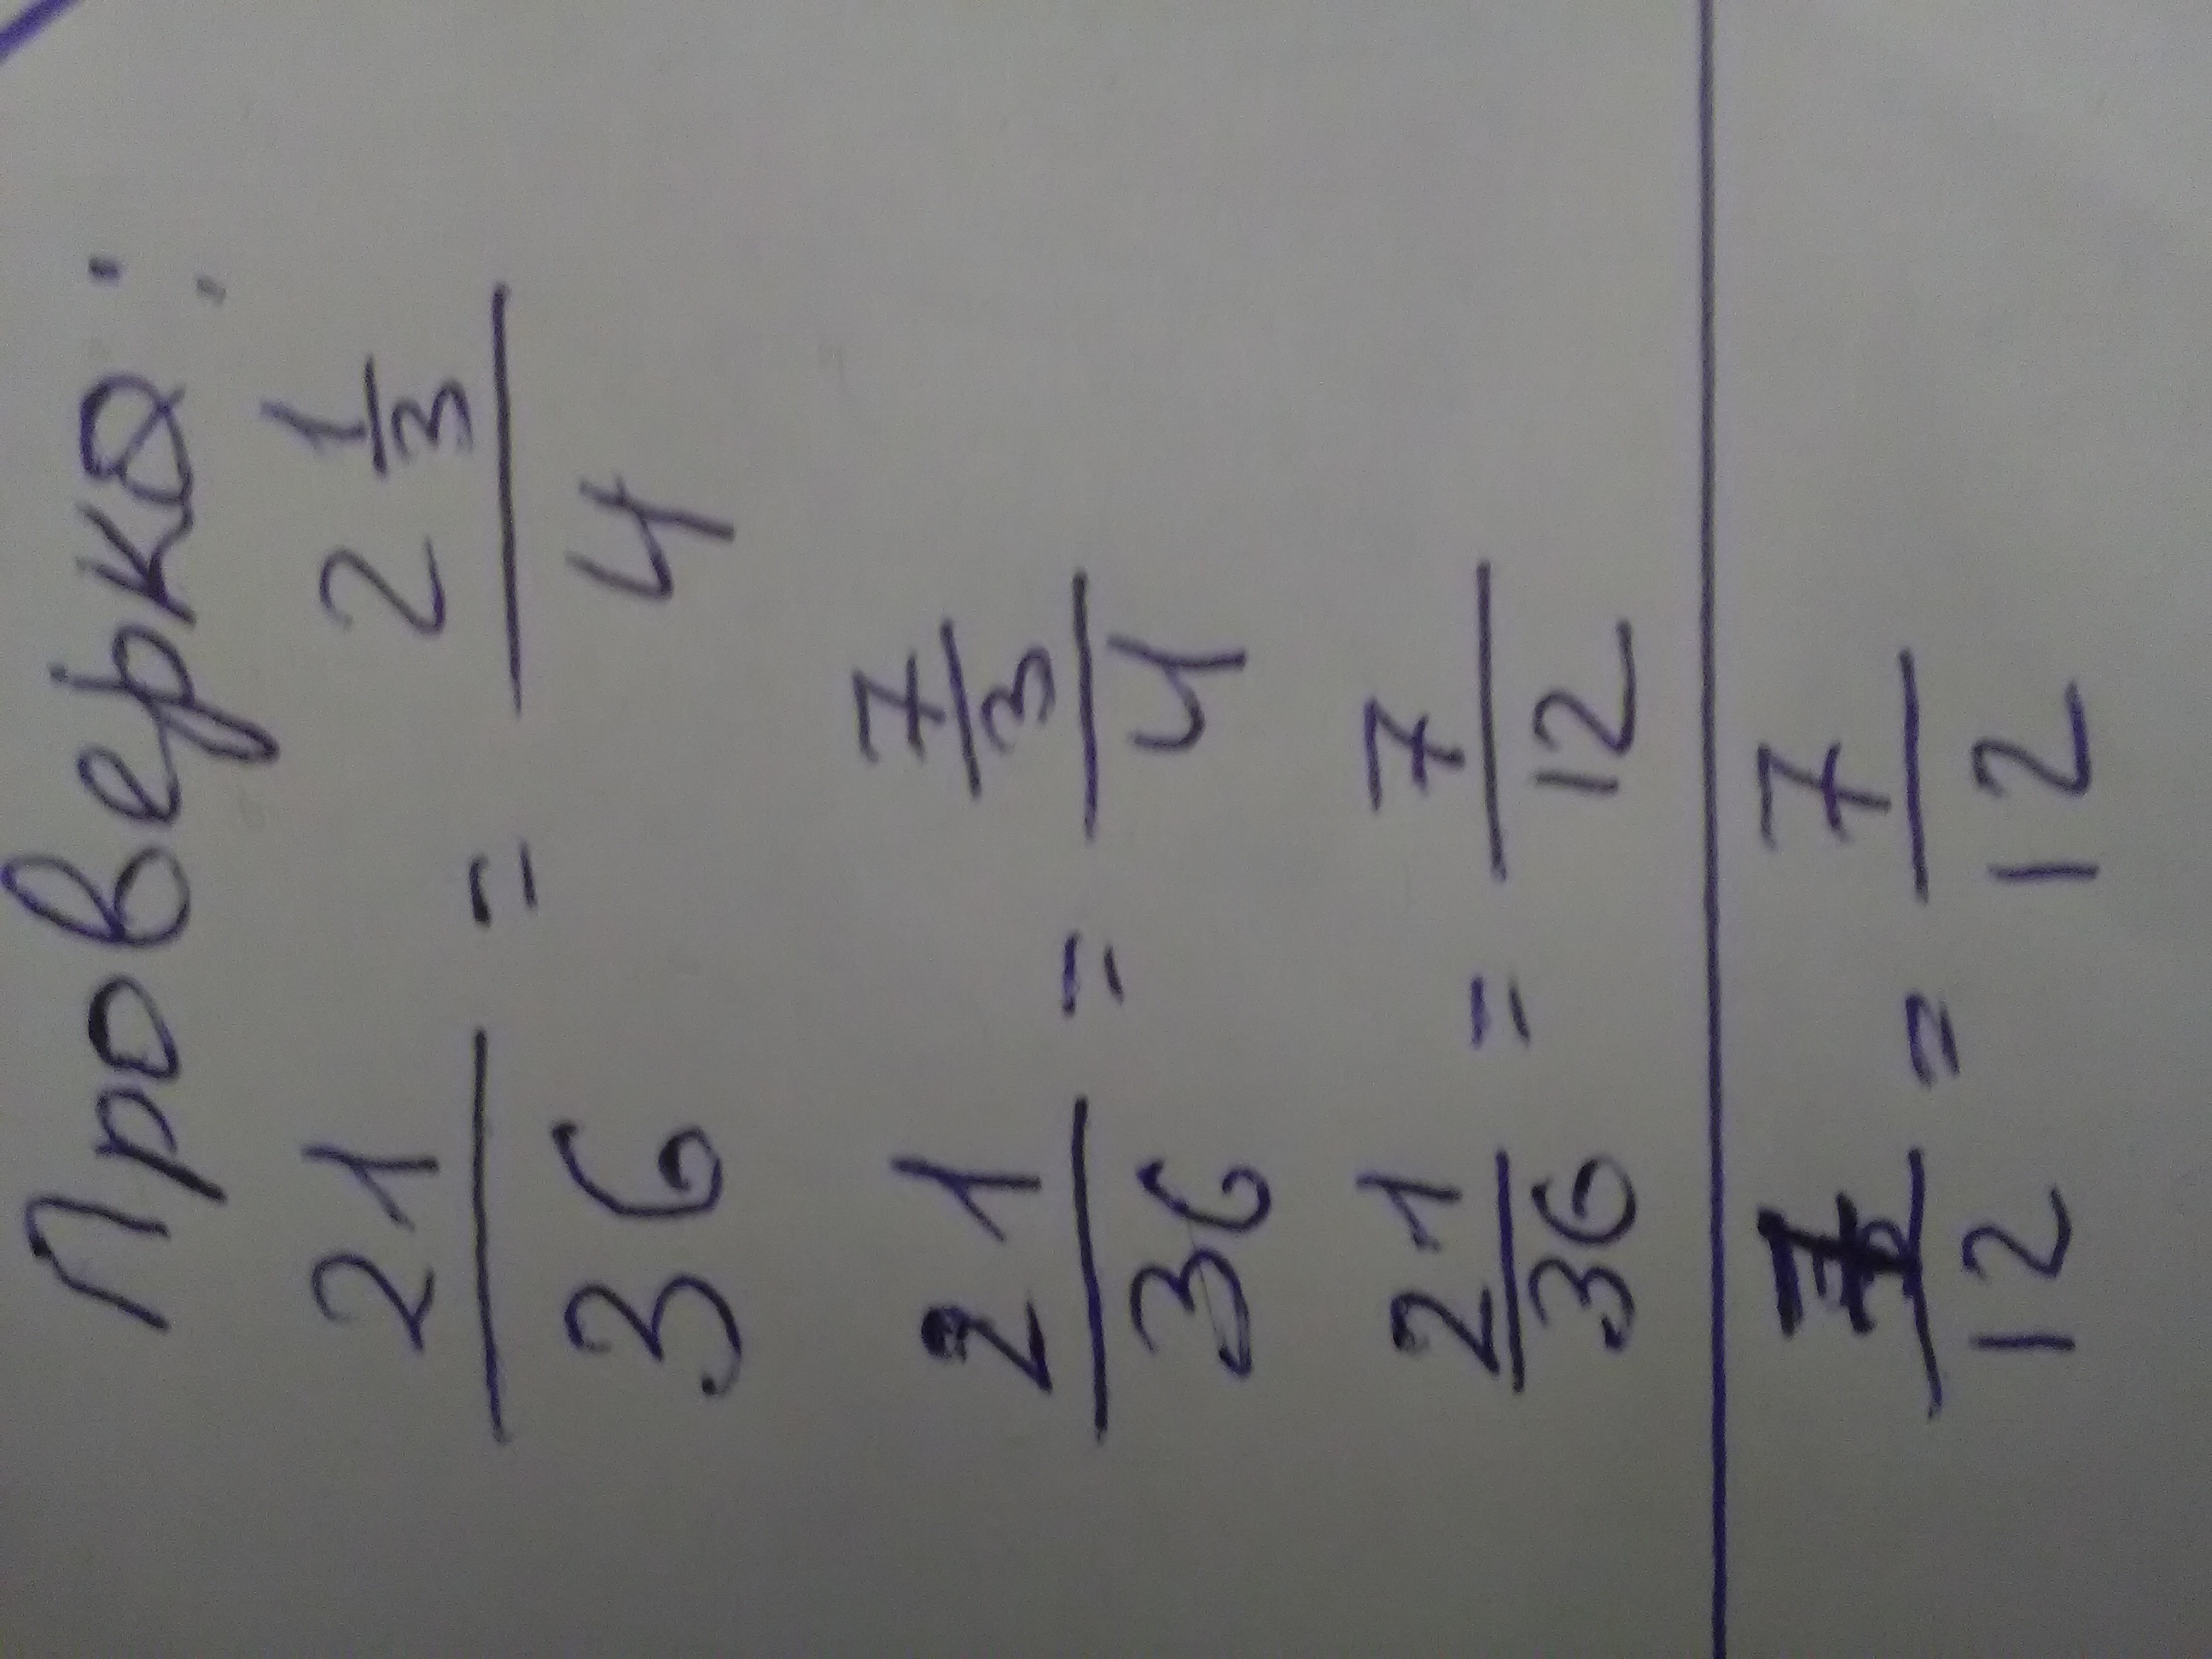 Проверка:
21/36 = 2 1/3 / 4
21/36 = 7/3 / 4
21/36 = 7/12
7/12 = 7/12